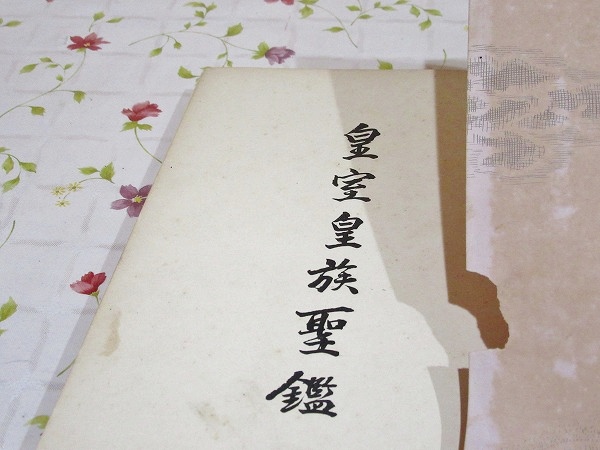 皇室皇族聖鑑